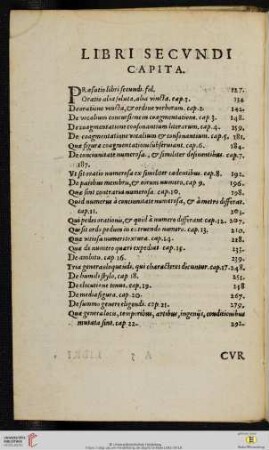 LIBRI SECVNDI
CAPITA.
PRæfatio libri secundi. fol. 127.
Oratio alia soluta, alia vincta. cap. 1. 134
De oratione vincta, & ordine verborum. cap. 2. 142.
De vocalium concursione in coagmentatione. cap 3. 148.
De coagmentatione consonantium literarum. cap. 4. 159.
De coagmentatione vocalium & consonantium. cap. 5. 181.
Quæ figura coagmentationi subserviant. cap. 6. 184.
De concinnitate numerosa, & similiter desinentibus. cap. 7.
187.
Vt sit oratio numerosa ex similiter cadentibus. cap. 8. 192.
De paribus membris, & eorum numero. cap. 9. 196.
Quæ sint contraria numerosa. cap. 10. 198.
Quid numerus à concinnitate numerosa, & à metro differat.
cap. 11. 203.
Qui pedes orationis, & quid à numero differat. cap. 12. 207.
Qui sit ordo pedum in numero. cap. 13. 210.
Quæ vitiosa numerosa. cap. 14. 218.
Quæ de numero quæri expediat cap. 15. 235.
De ambitu. cap. 16. 239.
Tria genera loquendi, qui characteres dicuntur. cap. 17. 248.
De humili stylo. cap. 18. 251.
De elocutione tenui. cap. 19. 248
De media figura. cap. 20. 267.
De summo genere eligendi. cap. 21. 279.
Quæ genera locis, temporibus, artibus, ingenijs, conditionibus
mutata sint. cap 22. 292.
CVR